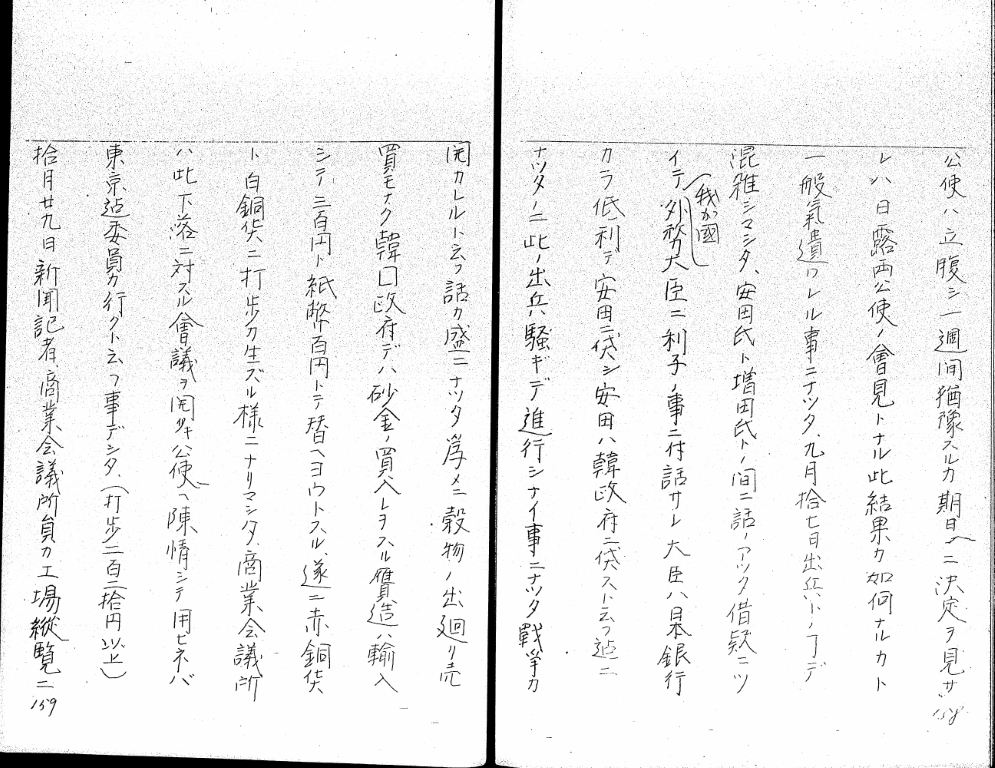 公使ハ立腹シ一週間猶豫スルカ期日ニ決定ヲ見サ
レハ日露両公使ノ會見トナル此結果カ如何ナルカト
一般氣遣ワレル事ニナツタ、九月拾七日出兵トノ了デ
混雑シマシタ、安田氏ト増田氏トノ間ニ話ノアツタ借款ニツ
イテ(我カ國)外務大臣ニ利子ノ事ニ付話サレ大臣ハ日本銀行
カラ低利デ安田ニ貸シ安田ハ韓政府ニ貸スト云フ迠ニ
ナツタノニ此ノ出兵騒ギデ進行シナイ事ニナツタ戰爭カ
158
開カレルト云フ話カ盛ニナツタ為メニ穀物ノ出廻リ売
買モナク韓国政府デハ砂金ノ買入レヲスル贋造ハ輸入
シテ二百円ト紙幣百円トテ替ヘヨウトスル、遂ニ赤銅貨
ト白銅貨ニ打歩カ生ズル様ニナリマシタ、商業会議所
ハ此下落ニ対スル會議ヲ開キ公使ヘ陳情シテ用ヒネバ
東京迠委員カ行クト云フ事デシタ、(打歩二百二拾円以上)
拾月廿九日新聞記者、商業会議所員カ工場縱覧ニ
159